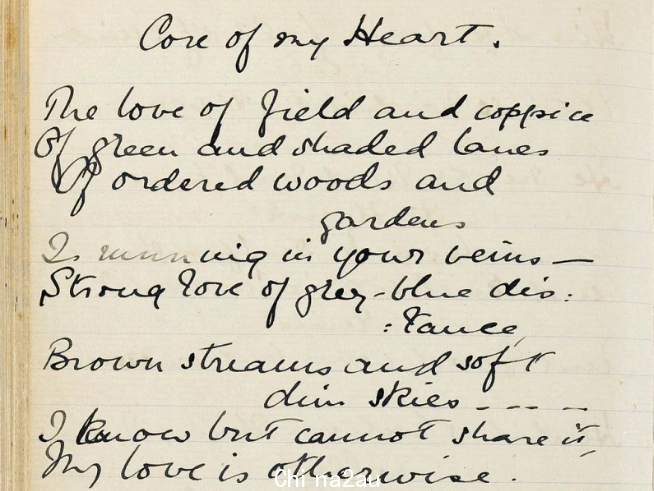 Core of my Heart.
The love of field and coppice
Of green and shaded lanes
Of ordered woods and
gardens
Is running in your veins —
Strong love of grey-blue dis:
:tance,
Brown streams and soft
dim skies - - - -
I know but cannot share it,
My love is otherwise.
Chi na2au